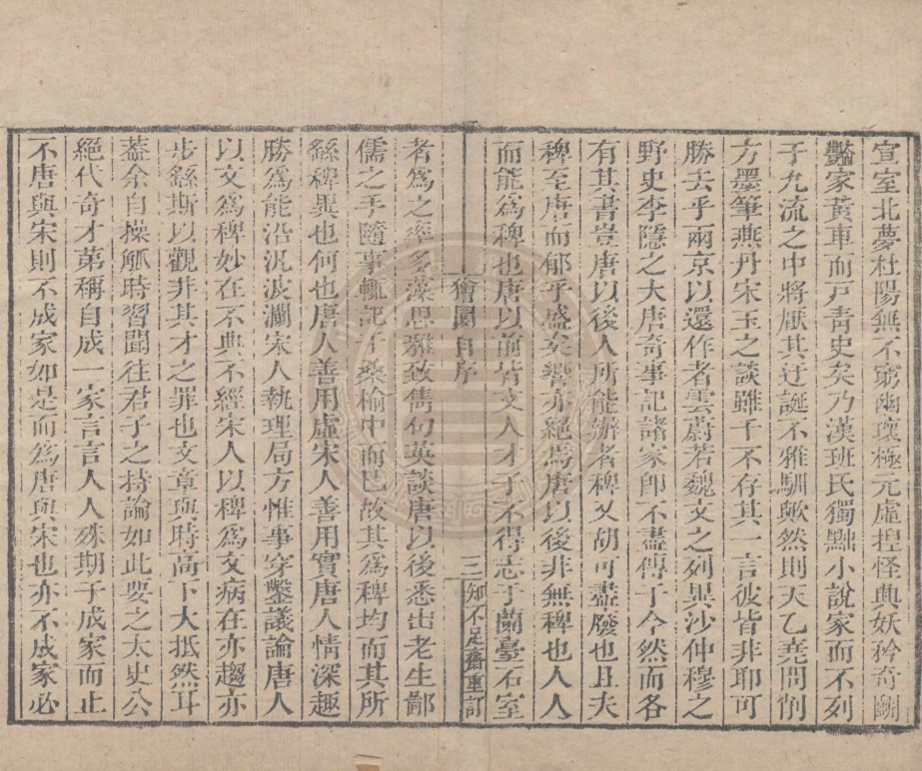 宣室北夢杜陽無不窮幽壤極元虛揑怪興妖矜奇鬭
豔家黃車而戸青史矣乃漢班氏獨黜小說家而不列
于九流之中將厭其迂誕不雅馴歟然則天乙堯問削
方墨筆燕丹宋玉之談雖千不存其一言彼皆非耶可
勝去乎兩京以還作者雲蔚若魏文之列異沙仲穆之
野史李隱之大唐奇事記諸家卽不盡傳于今然而各
有其書豈唐以後人所能辦者稗又胡可盡廢也且夫
稗至唐而郁乎盛矣響亦絕焉唐以後非無稗也人人
而能爲稗也唐以前皆文人才子不得志于蘭臺石室
獪園自序
三
知不足齋重訂
者爲之率多藻思雅致雋句英談唐以後悉出老生鄙
儒之手隨事輒記于桑榆中而已故其爲稗均而其所
繇稗異也何也唐人善用虛宋人善用實唐人情深趣
勝爲能沿汎波瀾宋人執理局方惟事穿鑿議論唐人
以文爲稗妙在不典不經宋人以稗爲文病在亦趨亦
步繇斯以觀非其才之罪也文章與時高下大抵然耳
蓋余自操觚時習聞往君子之持論如此要之太史公
絕代奇才第稱自成一家言言人人殊期于成家而止
不唐與宋則不成家如是而爲唐與宋也亦不成家必